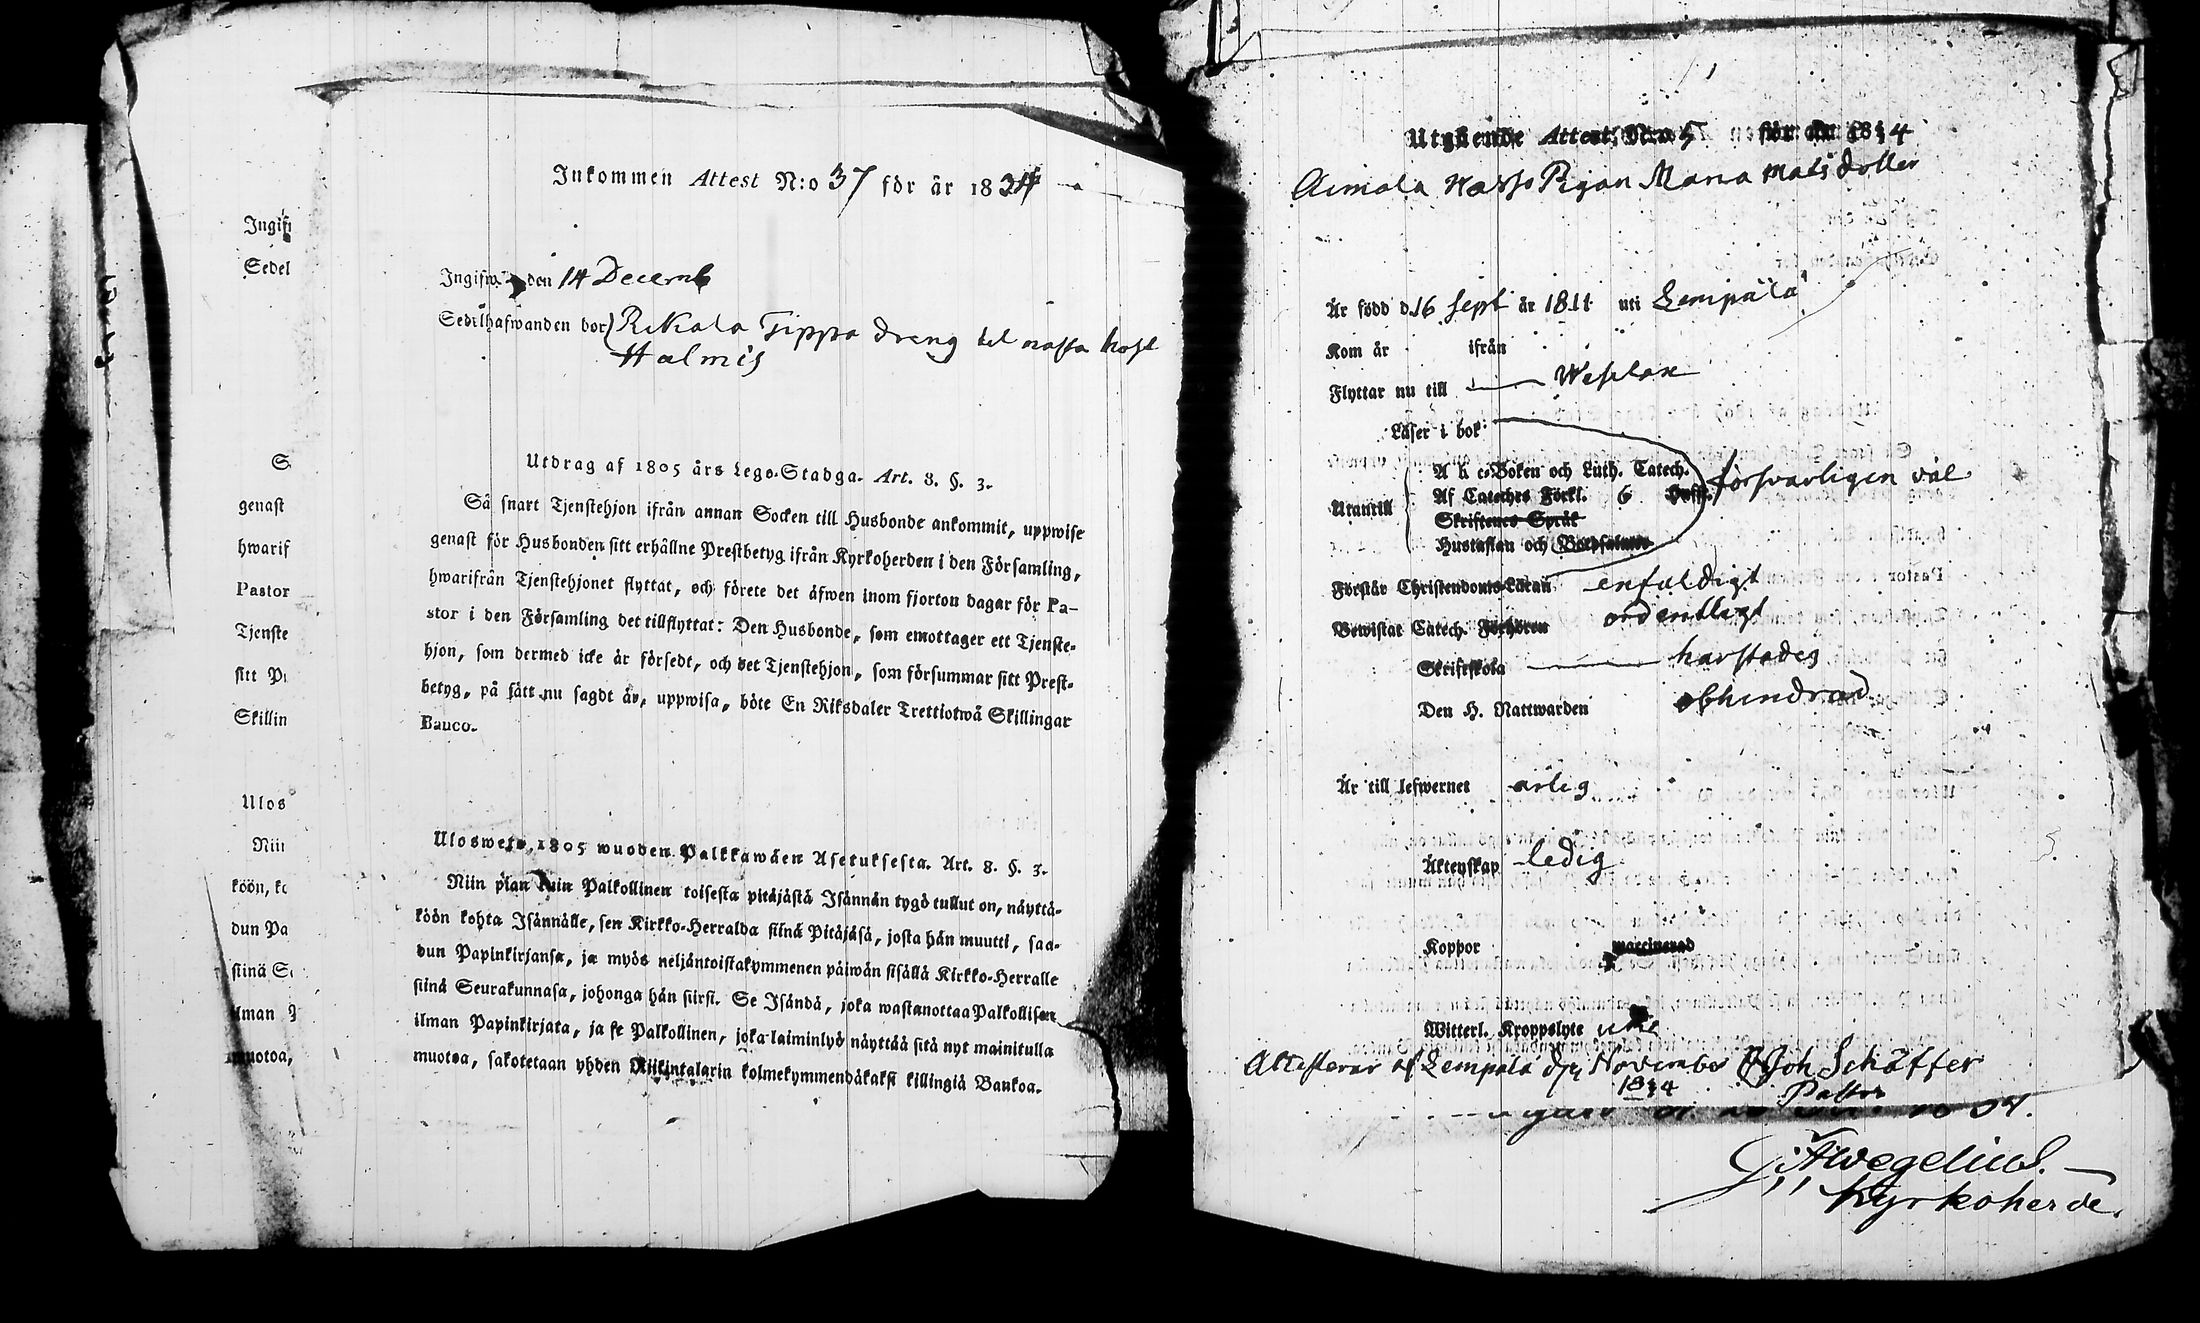 Inkommen Attest N:o 37 för år 1834
Ingifw. den 14 Decemb
Sedelhafwanden bor Rikala Tippa dreng til nästa höst
Halmis
Utdrag af 1805 års Lego-Stadga. Art. 8. §. 3.
Så snart Tjenstehjon ifrån annan Socken till Husbonde ankommit, uppwise
genast för Husbonden sitt erhållne Prestbetyg ifrån Kyrkoherden i den Församling,
hwarifrån Tjenstehjonet flyttat, och förete det äfwen inom fjorton dagar för Pa-
stor i den Församling det tillflyttat: Den Husbonde, som emottager ett Tjenste-
hjon, som dermed icke är försedt, och det Tjenstehjon, som försummar sitt Prest-
betyg, på sätt nu sagdt är, uppwisa, böte En Riksdaler Trettiotwå Skillingar
Banco.
Ulosweto 1805 wuoden Palkkawäen Asetuksesta. Art. 8. §. 3.
Niin pian kuin Palkollinen toisesta pitäjästä Isännän tygö tullut on, näyttä-
köön kohta Isännälle, sen Kirkko-Herralda siinä Pitäjäsä, josta hän muutti, saa-
dun Papinkirjansa, ja myös neljäntoistakymmenen päiwän sisällä Kirkko-Herralle
siinä Seurakunnasa, johonga hän siirsi. Se Isändä, joka wastanottaa Palkollisen
ilman Papinkirjata, ja se Palkollinen, joka laiminlyö näyttää sitä nyt mainitulla
muotoa, sakotetaan yhden Riikintalarin kolmekymmendäkaksi killingiä Bankoa.
Ingif
Sedel
genast
hwarif
Pastor
Tjenste
sitt P
Skillin
Ulos
Nii
köön, ko
dun Pa
siinä Se
ilman
muotoa,
Utgående Attest N:o 5 för år 1834
Pigan Maria Mats dotter
Är född d. 16 Sept år 1811 uti Lempälä
Kom år ifrån
Flyttar nu till Wesilax
Läser i bok
A b c-Boken och Luth. Catech. försvarligen väl
Utantill Af Cateches Förkl. 6
Skriftenes Språk
Hustaflan och Botpsalmer
Förstår Christendoms-Läran enfaldigt
Bewistat Catech. Förhören ordentligt
Skriftskola
Den H. Nattwarden obhindrad
Är till lefwernet ärlig
Äktenskap ledig
Koppor vaccinerad
Witterl. Kroppslyte
Attesterar af Lempälä November Joh Schäffer
1834 Pastor
Wegelius.
Kyrkoherde.